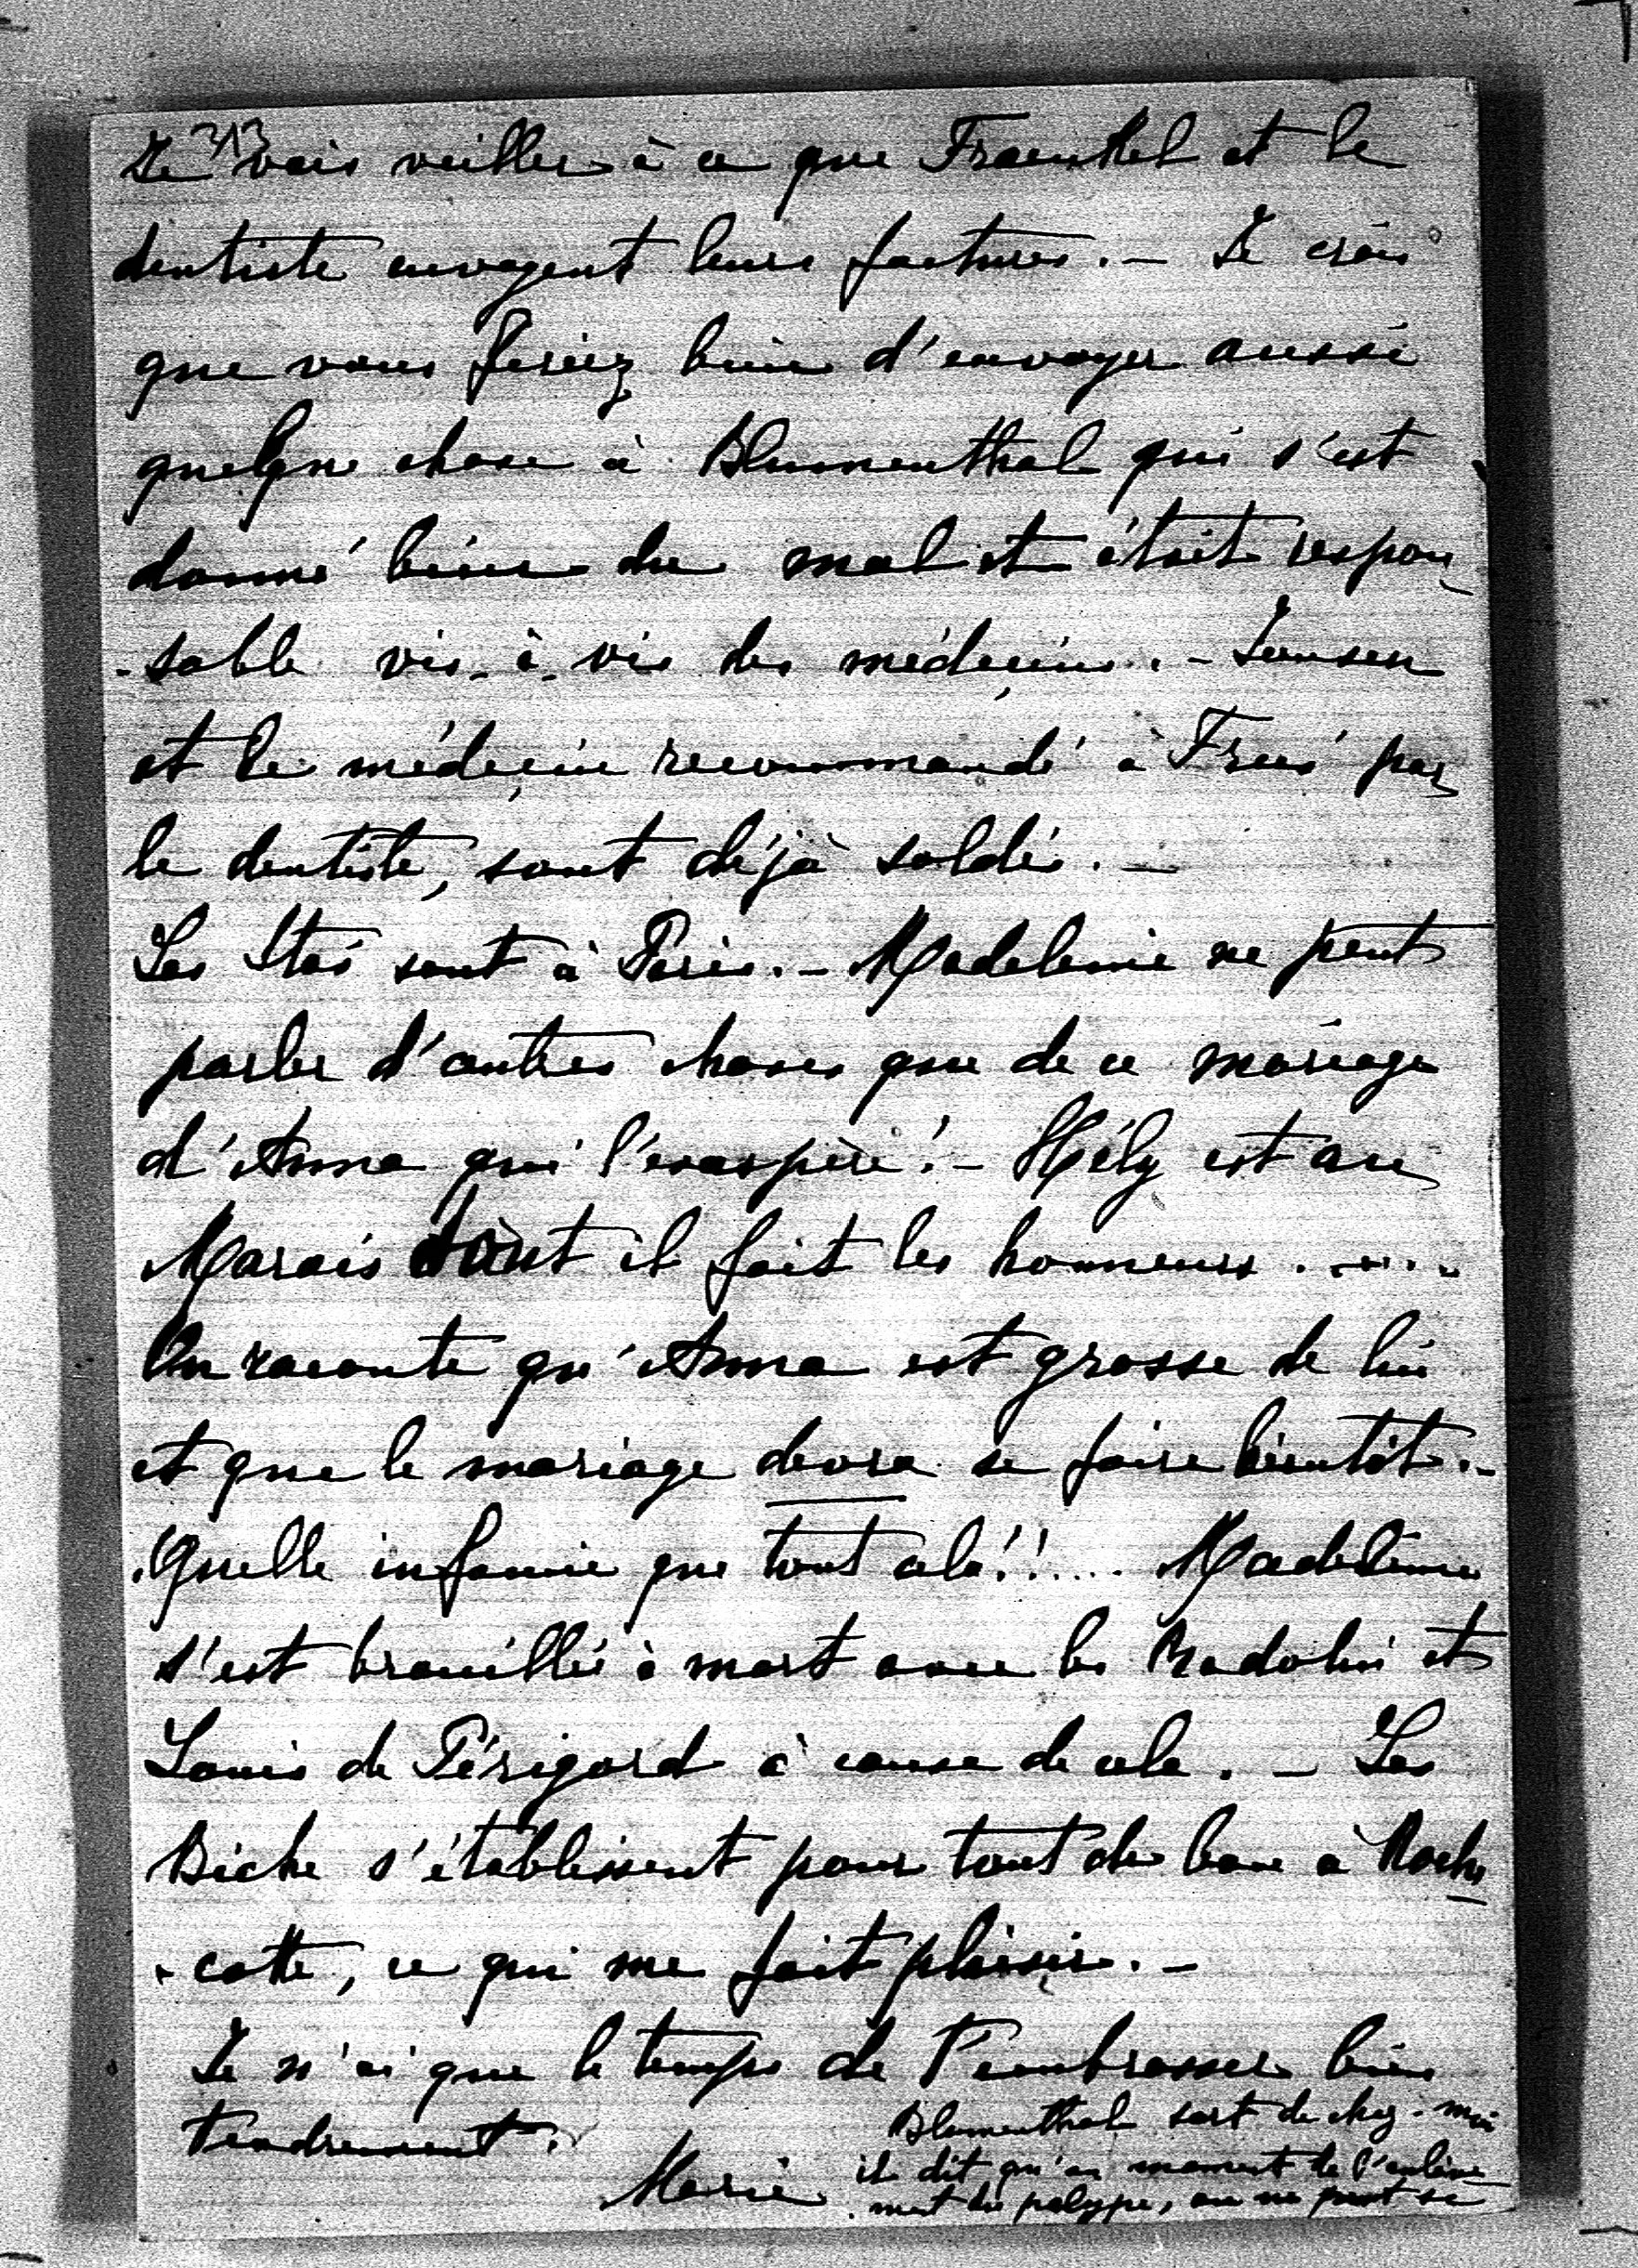 313
Je vais veiller à ce que Fraenkel et le
dentiste envoyent leurs factures. – Je crois
que vous feriez bien d'envoyer aussi
quelque chose à Blumenthal qui s'est
donné bien du mal et était respon-
-sable vis-à-vis des médeçins. –
et le médeçin recommandé à par
le dentiste, sont déjà soldés. –
Les sont à Paris. – Madeleine ne peut
parler d'autres choses que de ce mariage
d'Anna qui l'exaspère! – Hély est au
Marais dont il fait les honneurs . . . . .
On raconte qu'Anna est grosse de lui
et que le mariage devra se faire bientôt. –
Quelle infamie que tout cela!! .... Madeleine
s'est brouillée à mort avec les Radolin et
Louis de Périgord à cause de cela. – Les
Biche s'établissent pour tout de bon à Roche-
-cotte, ce qui me fait plaisir. –
Je n'ai que le temps de t'embrasser bien
tendrement.
Marie
Blumenthal sort de chez-moi
il dit qu'au moment de l'enlève-
-ment du polype, on ne peut se